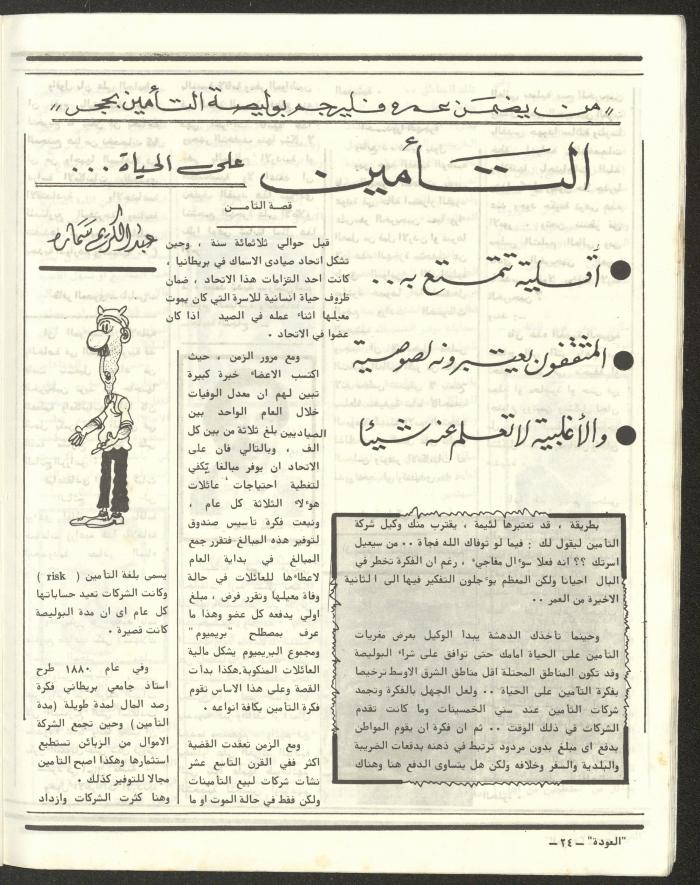 „من يضمن عمره فليرجم بوليصة التأمين بحجر„
التأمين
على الحياة ...
عبد الكريم سمارة
● أقلية تتمتع به ..
● المثقفون يعتبرونه لصوصية
● والأغلبية لا تعلم عنه شيئا
بطريقة ، قد تعتبرها لئيمة ، يقترب منك وكيل شركة
التأمين ليقول لك : فيما لو توفاك الله فجأة .. من سيعيل
اسرتك ؟؟ انه فعلا سؤال مفاجيء ، رغم ان الفكرة تخطر في
البال احيانا ولكن المعظم يؤجلون التفكير فيها الى الثانية
الاخيرة من العمر ..
وحينما تأخذك الدهشة يبدأ الوكيل بعرض مغريات
التأمين على الحياة امامك حتى توافق على شراء البوليصة
وقد تكون المناطق المحتلة اقل مناطق الشرق الاوسط ترخيصا
بفكرة التأمين على الحياة .. ولعل الجهل بالفكرة وتجمد
شركات التأمين عند سني الخمسينات وما كانت تقدم
الشركات في ذلك الوقت .. ثم ان فكرة ان يقوم المواطن
بدفع اى مبلغ بدون مردود ترتبط في ذهنه بدفعات الضريبة
والبلدية والسفر وخلافه ولكن هل يتساوى الدفع هنا وهناك
قصة التأمين
قبل حوالي ثلاثمائة سنة ، وحين
تشكل اتحاد صيادى الاسماك في بريطانيا ،
كانت احد التزامات هذا الاتحاد ، ضمان
ظروف حياة انسانية للاسرة التي كان يموت
معيلها اثناء عمله في الصيد اذا كان
عضوا في الاتحاد .
ومع مرور الزمن ، حيث
اكتسب الاعضاء خبرة كبيرة
تبين لهم ان معدل الوفيات
خلال العام الواحد بين
الصياديين بلغ ثلاثة من بين كل
الف ، وبالتالي فان على
الاتحاد ان يوفر مبالغا يكفي
لتغطية احتياجات عائلات
هؤلاء الثلاثة كل عام ،
ونبعت فكرة تأسيس صندوق
لتوفير هذه المبالغ فتقرر جمع
المبالغ في بداية العام
لاعطاءها للعائلات في حالة
وفاة معيلها وتقرر فرض ، مبلغ
اولي يدفعه كل عضو وهذا ما
عرف بمصطلح "بريميوم"
ومجموع البريميوم يشكل مالية
العائلات المنكوبة.هكذا بدأت
القصة وعلى هذا الاساس تقوم
فكرة التأمين بكافة انواعه .
ومع الزمن تعقدت القضية
اكثر ففي القرن التاسع عشر
نشأت شركات لبيع التأمينات
ولكن فقط في حالة الموت او ما
يسمى بلغة التأمين ( risk )
وكانت الشركات تعيد حساباتها
كل عام اى ان مدة البوليصة
كانت قصيرة .
وفي عام ١٨٨٠ طرح
استاذ جامعي بريطاني فكرة
رصد المال لمدة طويلة (مدة
التأمين) وحين تجمع الشركة
الاموال من الزبائن تستطيع
استثمارها وهكذا اصبح التأمين
مجالا للتوفير كذلك .
وهنا كثرت الشركات وازداد
"العودة" ــ ٢٤ ــ